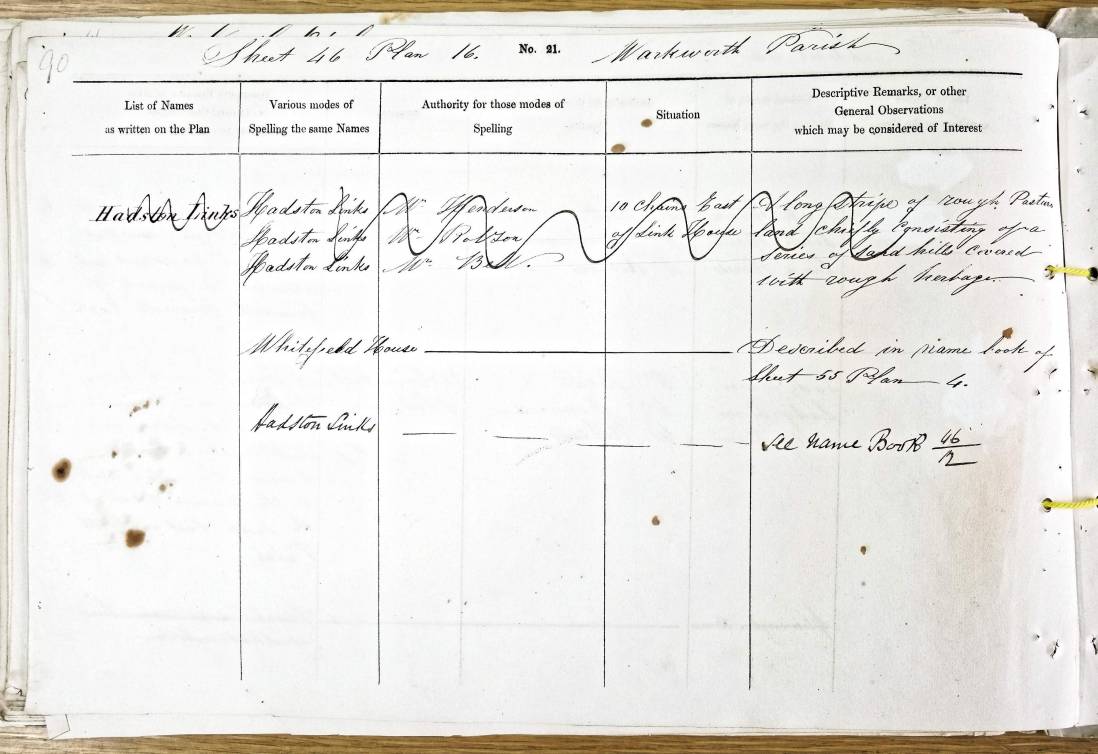 90
Sheet 46 Plan 16. No. 21. Warkworth Parish
List of Names
as written on the Plan
Various modes of
Spelling the same Names
Authority for those modes of
Spelling
Situation
Descriptive Remarks, or other
General Observations
which may be considered of Interest
Hadston Links
Hadston Links
Hadston Links
Hadston Links
Mr. Henderson
Mr. Robson
Mr. Bell.
10 Chains East
of Link House
A long Stripe of rough Pasture
land chiefly Consisting of a
Series of sand hills Covered
with rough herbage.
Whitefield House
Described in name book of
Sheet 55 Plan 4.
Hadston Links
See Name Book 46/12